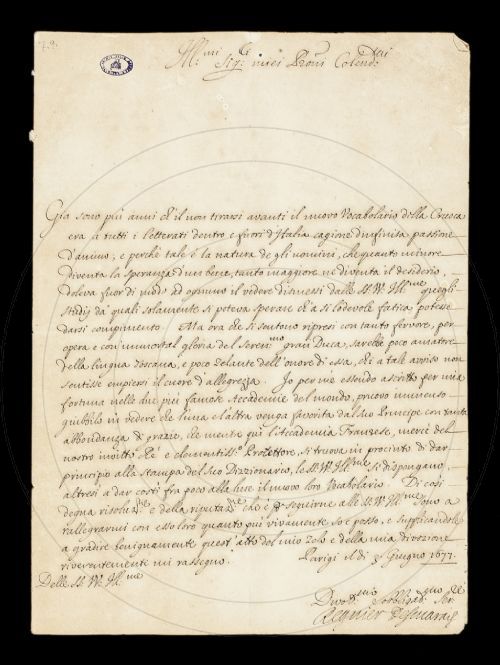 79.
Ill.mi Sig.ri miei Proni Colend.mi
Gia sono più anni ch'il non tirarsi avanti il nuovo Vocabolario della Crusca
era à tutti i letterati dentro e fuori d'Italia cagione d'infinita passione
d'animo; e perche tale è la natura de gli uomini, che quanto minore
diventa la speranza d'un bene, tanto maggiore ne diventa il desiderio,
doleva fuor di modo ad ognuno il vedere dismessi dalle SS. VV. Ill.me quegli
studij da' quali solamente si poteva sperare ch'a si lodevole fatica potesse
darsi compimento. Ma ora che si sentono ripresi con tanto fervore, per
opera e con immortal gloria del Seren.mo gran Duca, sarebbe poco amatore
della lingua Toscana, e poco zelante dell'onore di essa, chi a tale avviso non
sentisse empiersi il cuore d'allegrezza. Io per me essendo ascritto per mia
fortuna nelle due più famose Accademie del mondo, pruovo immenso
giubbilo in vedere che l'una e l'altra venga favorita dal suo Principe con tanta
abbondanza di grazie, che mentre quì l'Accademia Franzese, mercè del
nostro invitto Rè e clementiss.o Protettore, si truova in procinto di dar
principio alla stampa del suo Dizzionario, le SS. VV. Ill.me si dispongano
altresi a dar costì fra poco alla luce il nuovo loro Vocabolario. Di così
degna risoluz.ne e della riputaz.ne che è p seguirne alle SS. VV. Ill.me sono a
rallegrarmi con esso loro quanto più vivamente sò e posso, e supplicandole
a gradire benignamente quest'atto del mio zelo e della mia divozione
riverentemente mi rassegno. Parigi il di 3 Giugno 1677.
Delle SS. VV. Ill.me
Divot.mo Obbligat.mo Ser.
Regnier Desmarais